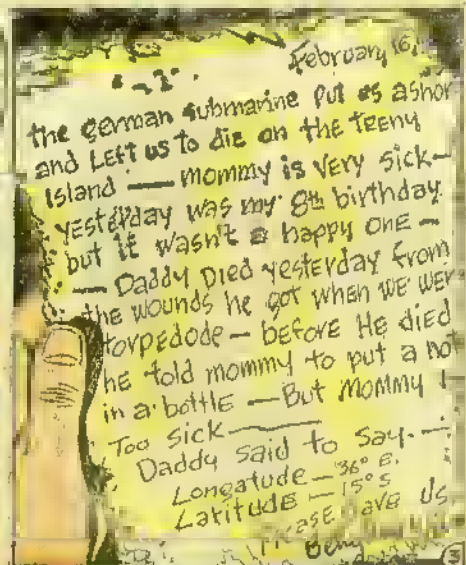 February 16,
the german submarine put us ashor
and Left us to die on the Teeny
Island — mommy is very sick —
yesterday was my 8th birthday
but it wasn't a happy one —
— Daddy Died yesterday from
the wounds he got when we wer
torpedode — before He died
he told mommy to put a not
in a bottle — But Mommy I
Too sick —
Daddy said to say. —
Longatude — 36° E.
Latitude — 15° S
Please ave us
3